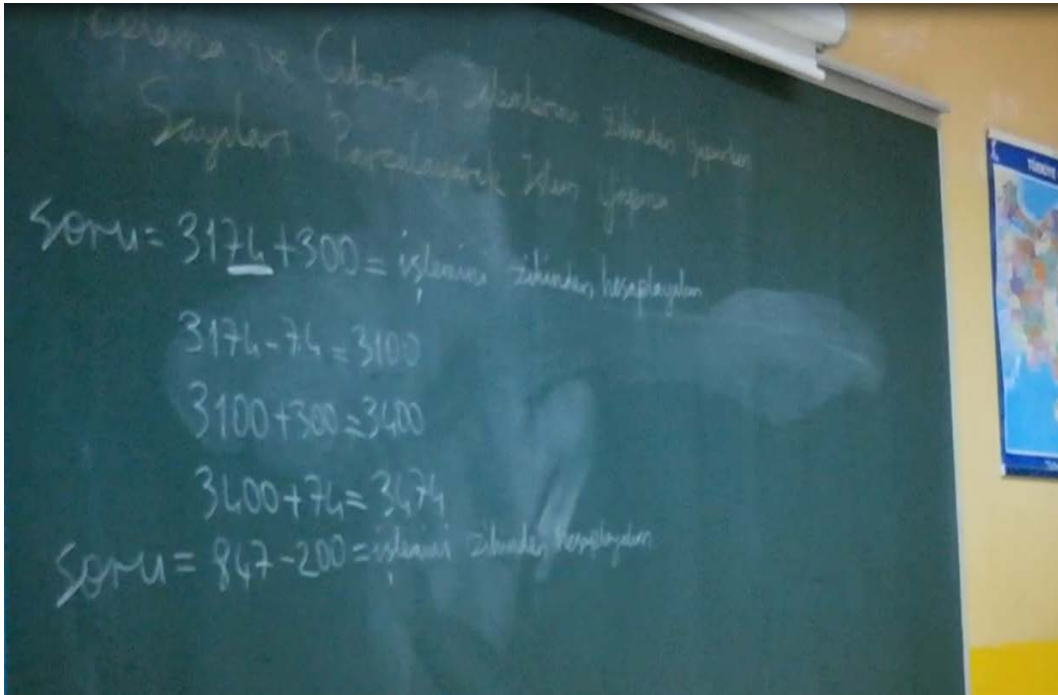 Toplama ve Çıkarma İşlemlerini Zihinden Yaparken
Sayıları Parçalayarak İşlem Yapma
Soru = 3174+300 = işlemini zihinden hesaplayalım
3174-74=3100
3100+300=3400
3400+74=3474
Soru = 847-200 = işlemini zihinden hesaplayalım
TÜRKİYE